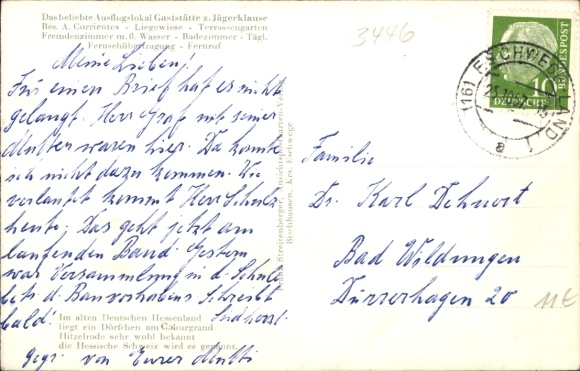 Das beliebte Ausflugslokal Gaststätte z. Jägerklause
Bes. A. Corrientes - Liegewiese - Terrassengarten
Fremdenzimmer m. fl. Wasser - Badezimmer - Tägl.
Fernsehübertragung - Fernruf
Meine Lieben!
Für einen Brief hat es nicht
gelangt. Herr Graf mit seiner
Mutter waren hier. Da konnte
ich nicht dazu kommen. Wie
verlautet kommt Herr Schulz
heute; Das geht jetzt am
laufenden Band. Gestern
war Versammlung in d. Schule
betr. d. Bauvorhabens. Schreibt
bald!
Im alten Deutschen Hessenland
liegt ein Dörfchen am Gaburgrand
Hitzelrode sehr wohl bekannt
die Hessische Schweiz wird es genannt.
Seid herzl.
Gegr. von Eurer Mutti
Streitenberger, Ansichtspostkarten-Verlag
Bischhausen, Krs. Eschwege
3446
(16) ESCHWEGE LAND
a
DEUTSCHE BUNDESPOST
10
Familie
Dr. Karl Dehnert
Bad Wildungen
Dürrerhagen 20
11€